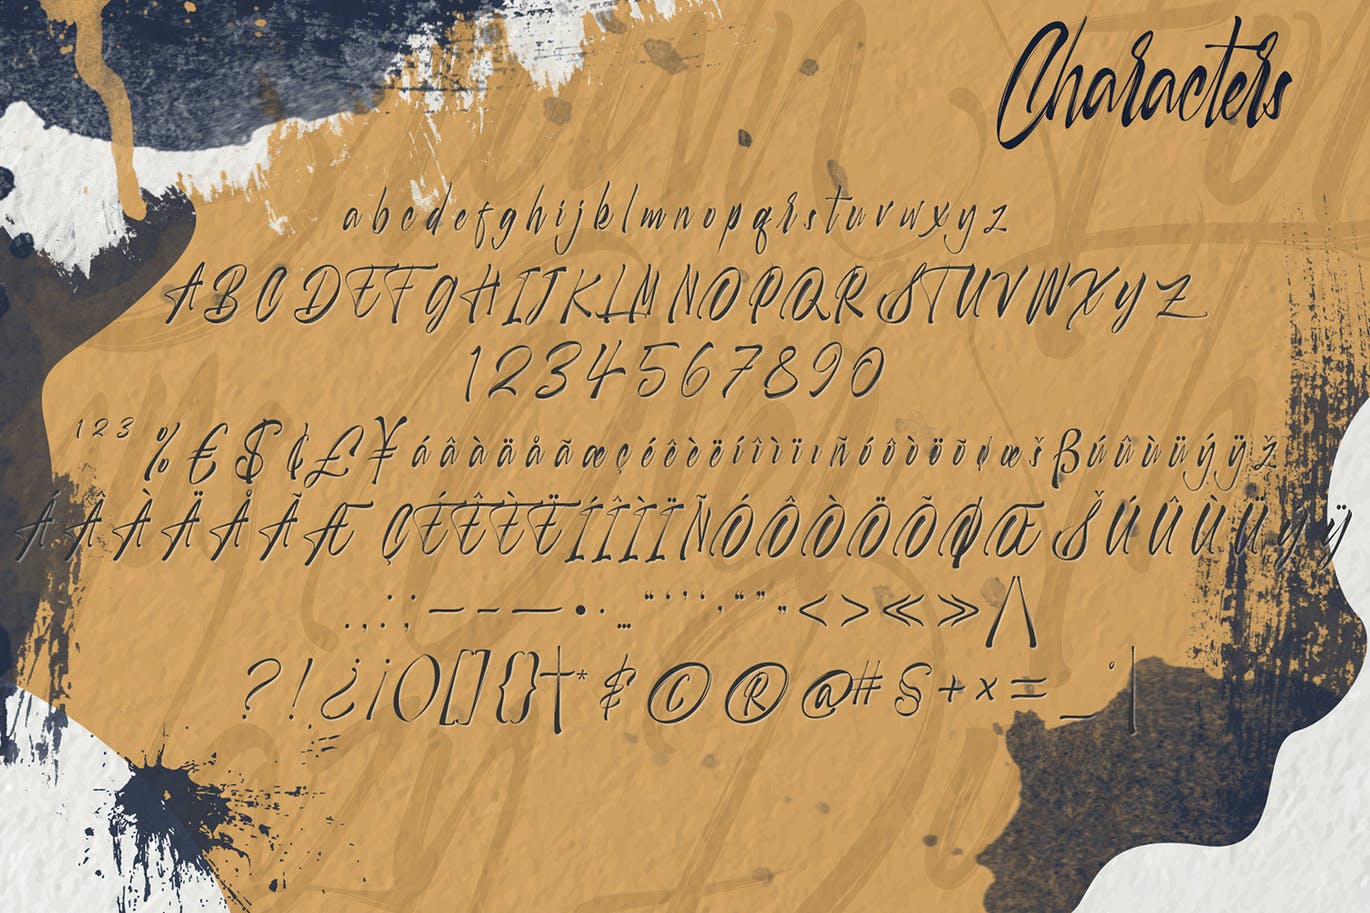 Characters
abcdefghijklmnopqrstuvwxyz
ABCDEFGHIJKLMNOPQRSTUVWXYZ
1234567890
¹²³ %€$¢£¥áâàäåãæçéêèëíîìïıñóôòöõøœšßúûùüýÿž
ÁÂÀÄÅÃÆÇÉÊÈËÍÎÌÏÑÓÔÒÖÕØŒŠÚÛÙÜÝŸ
.,:;—–-—•·…"'‘’‚“”„<>«»/\
?!¿¡()[]{}†*¢©®@#§+×=_°|